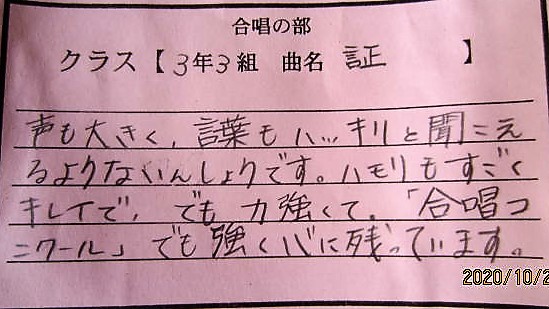 合唱の部
クラス【3年3組 曲名 証 】
声も大きく、言葉もハッキリと聞こえ
るよりないんしょりです。ハモリもすごく
キレイで、でも力強くて。「合唱コ
ンクール」でも強く心に残っています。
2020/10/2